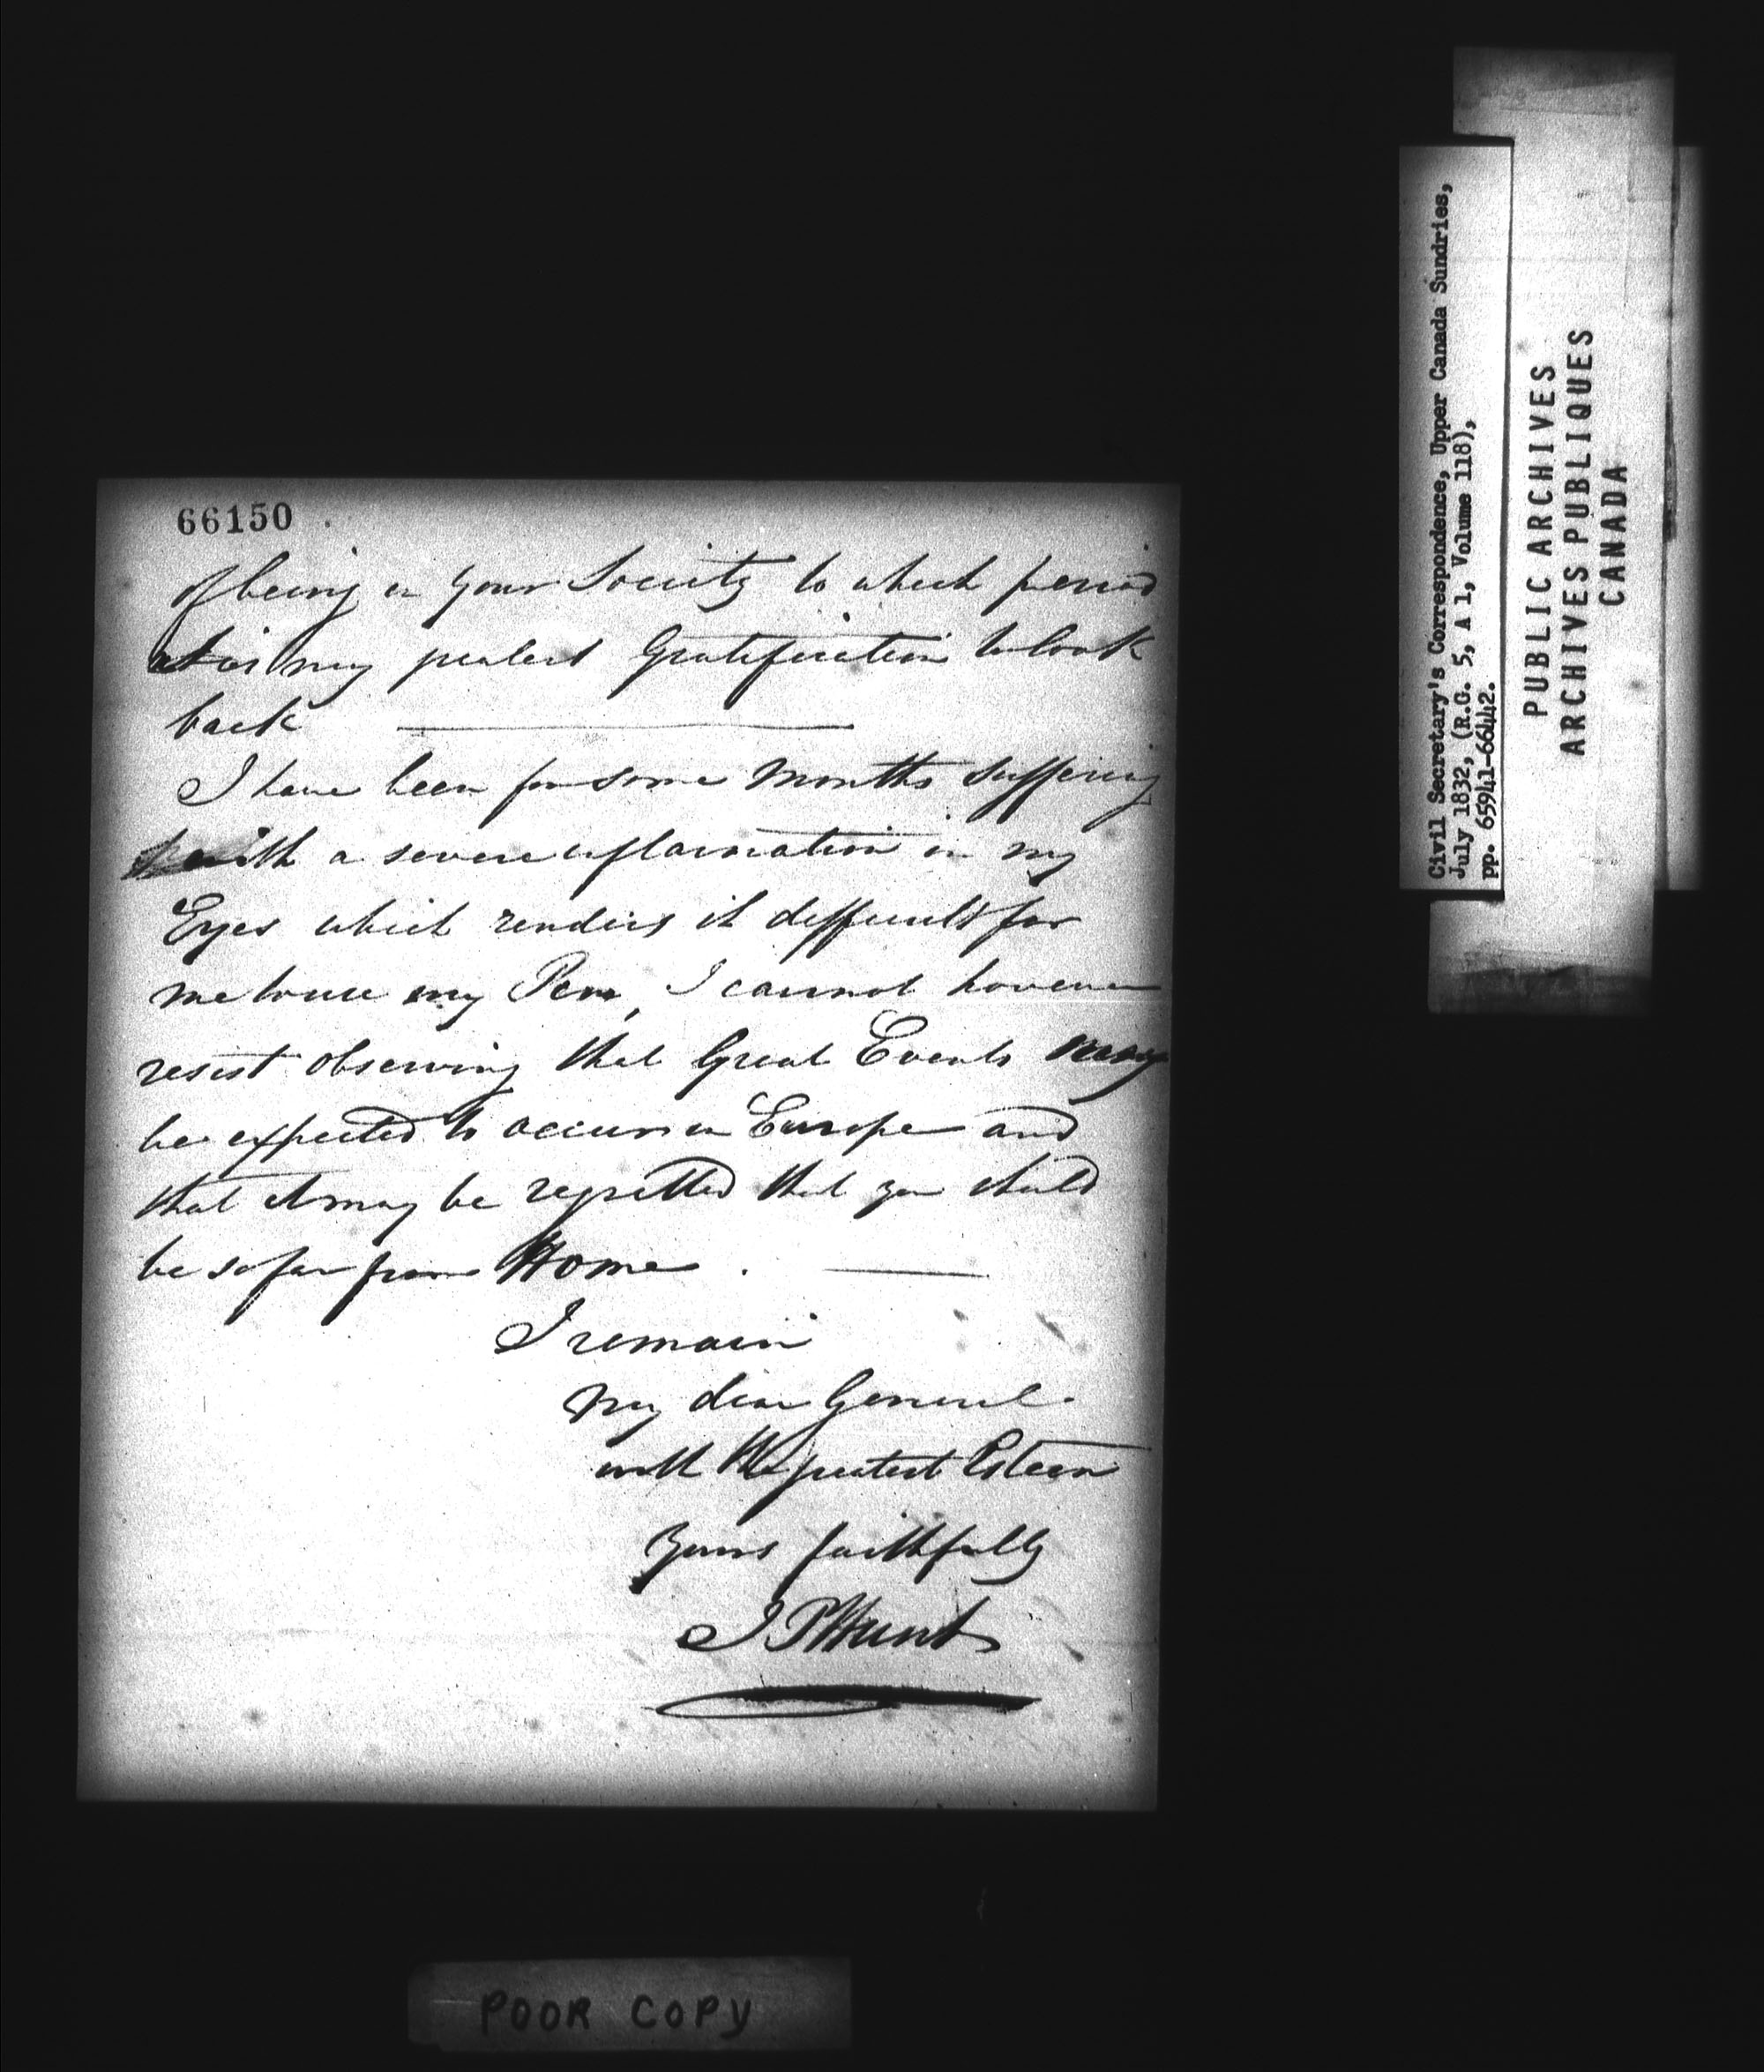 66150
of being in your Society to which period
it is my greatest Gratification to look
back
I have been for some Months suffering
with a severe inflamation in my
Eyes which renders it difficult for
me to use my Pen, I cannot however
resist observing that Great Events may
be expected to occur in Europe and
that it may be regretted that you should
be so far from Home.
I remain
My dear General
with the greatest Esteem
Yours faithfully
J P Hunt
POOR COPY
Civil Secretary's Correspondence, Upper Canada Sundries,
July 1832, (R.G. 5, A 1, Volume 118),
pp. 65941-66442.
PUBLIC ARCHIVES
ARCHIVES PUBLIQUES
CANADA